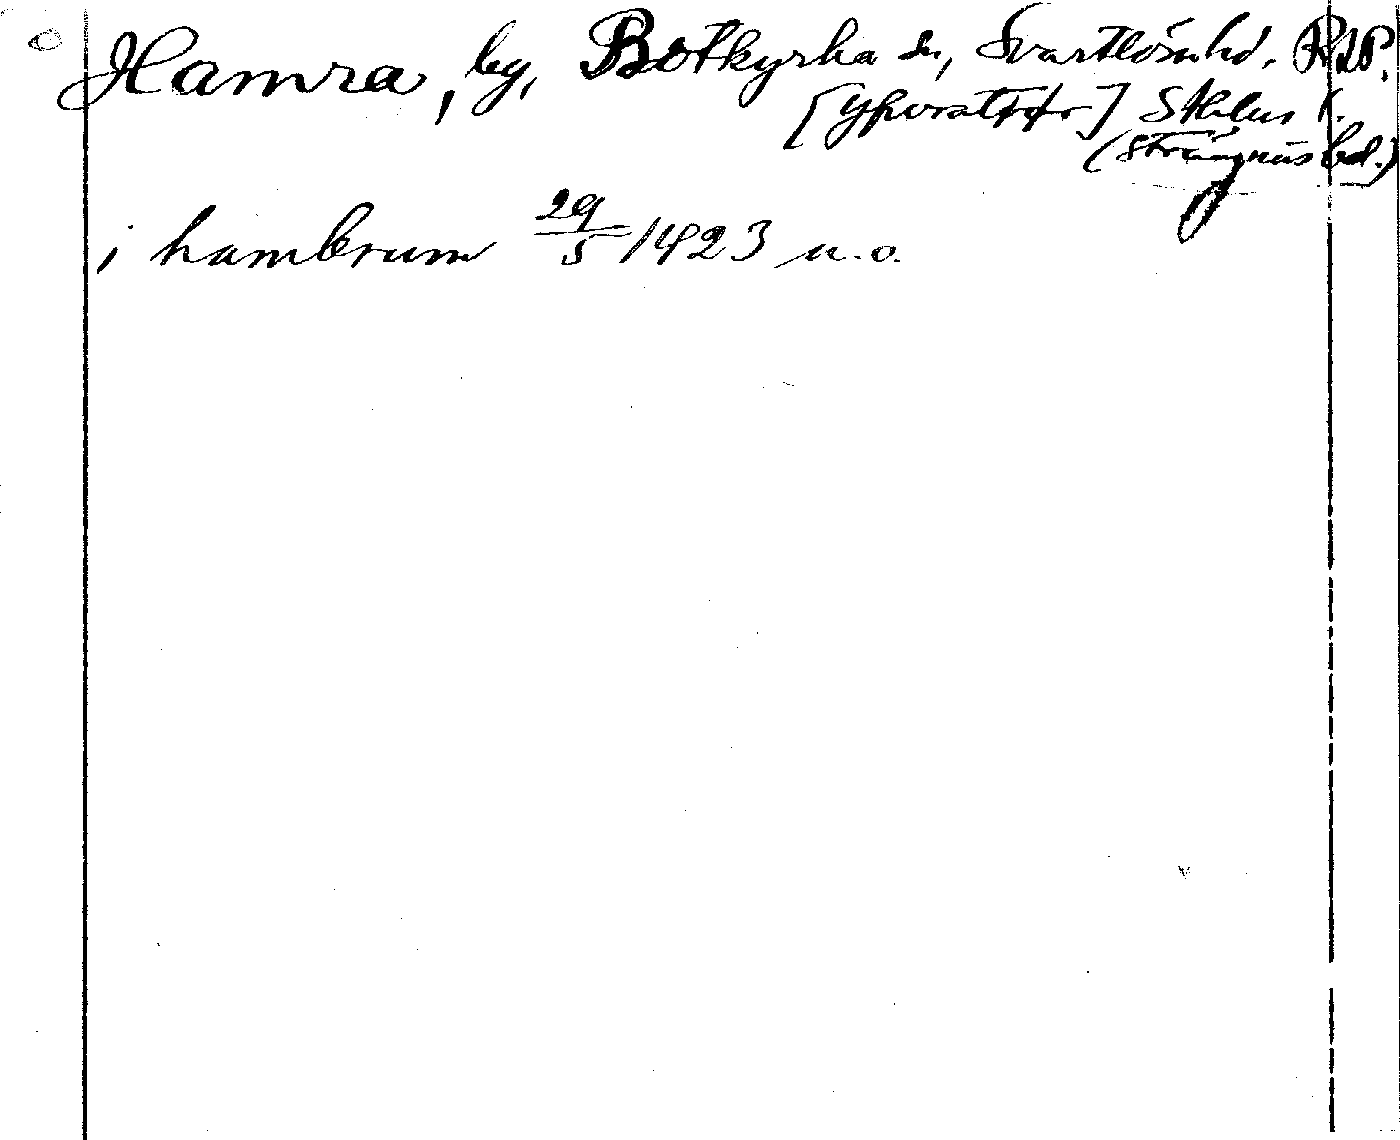 Hamra, by, Botkyrka sn, Svartlösa hd. RAP.
Sthlms l.
(Strängnäs bd.)
i hambrum 29/5 1423 u.o.